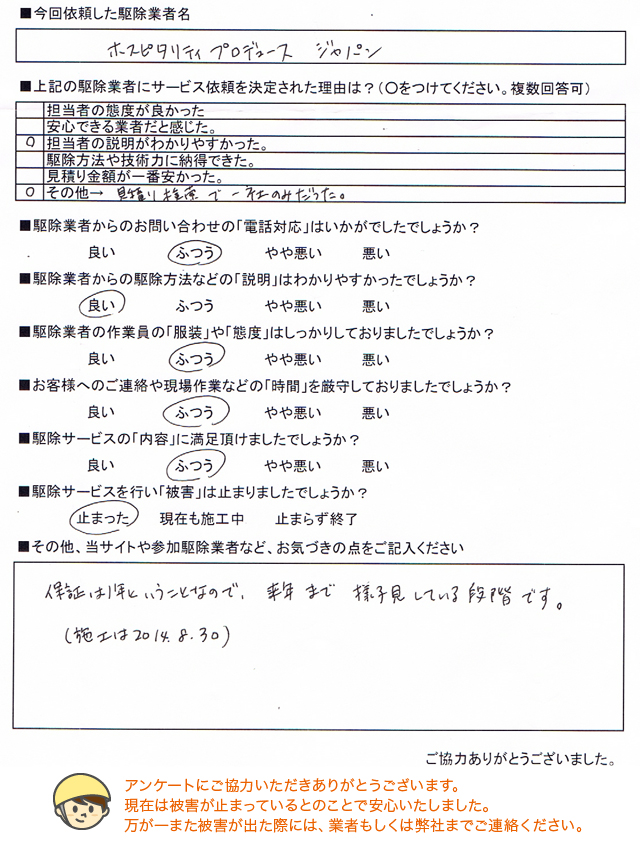 ■今回依頼した駆除業者名
ホスピタリティ プロデュース ジャパン
■上記の駆除業者にサービス依頼を決定された理由は？(〇をつけてください。複数回答可)
担当者の態度が良かった
安心できる業者だと感じた。
○ 担当者の説明がわかりやすかった。
駆除方法や技術力に納得できた。
見積り金額が一番安かった。
○ その他→ 見積り検索で一社のみだった。
■駆除業者からのお問い合わせの「電話対応」はいかがでしたでしょうか？
良い ふつう やや悪い 悪い
■駆除業者からの駆除方法などの「説明」はわかりやすかったでしょうか？
良い ふつう やや悪い 悪い
■駆除業者の作業員の「服装」や「態度」はしっかりしておりましたでしょうか？
良い ふつう やや悪い 悪い
■お客様へのご連絡や現場作業などの「時間」を厳守しておりましたでしょうか？
良い ふつう やや悪い 悪い
■駆除サービスの「内容」に満足頂けましたでしょうか？
良い ふつう やや悪い 悪い
■駆除サービスを行い「被害」は止まりましたでしょうか？
止まった 現在も施工中 止まらず終了
■その他、当サイトや参加駆除業者など、お気づきの点をご記入ください
保証は1年ということなので、来年まで様子見している段階です。
(施工は2014.8.30)
ご協力ありがとうございました。
アンケートにご協力いただきありがとうございます。
現在は被害が止まっているとのことで安心いたしました。
万が一また被害が出た際には、業者もしくは弊社までご連絡ください。